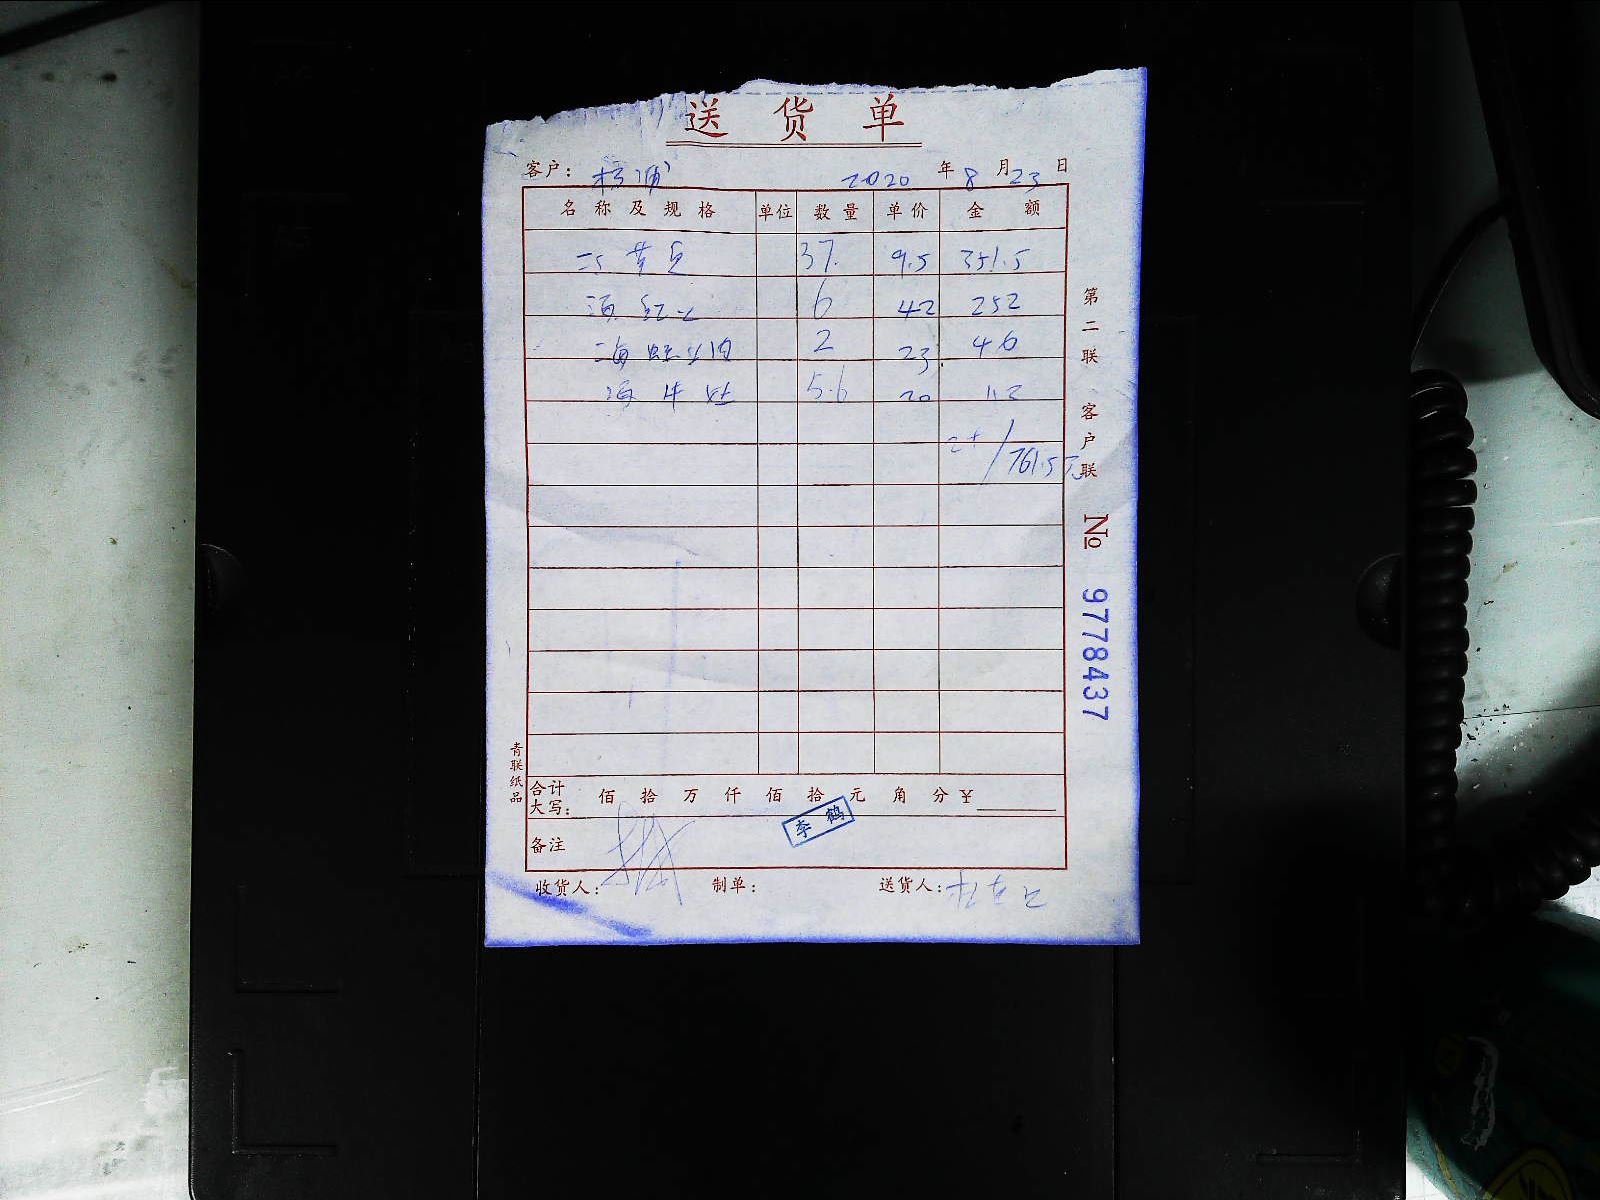 送货单
客户: 杨浦 2020年8月23日
名称及规格 单位 数量 单价 金额
37. 9.5 351.5
6 42 252
海 2 23 46
海 5.6 20 112
761.5
合计大写: 佰 拾 万 仟 佰 拾 元 角 分 ¥
李鹤
备注
收货人: 制单: 送货人:
第二联 客户联
№ 9778437
青联纸品